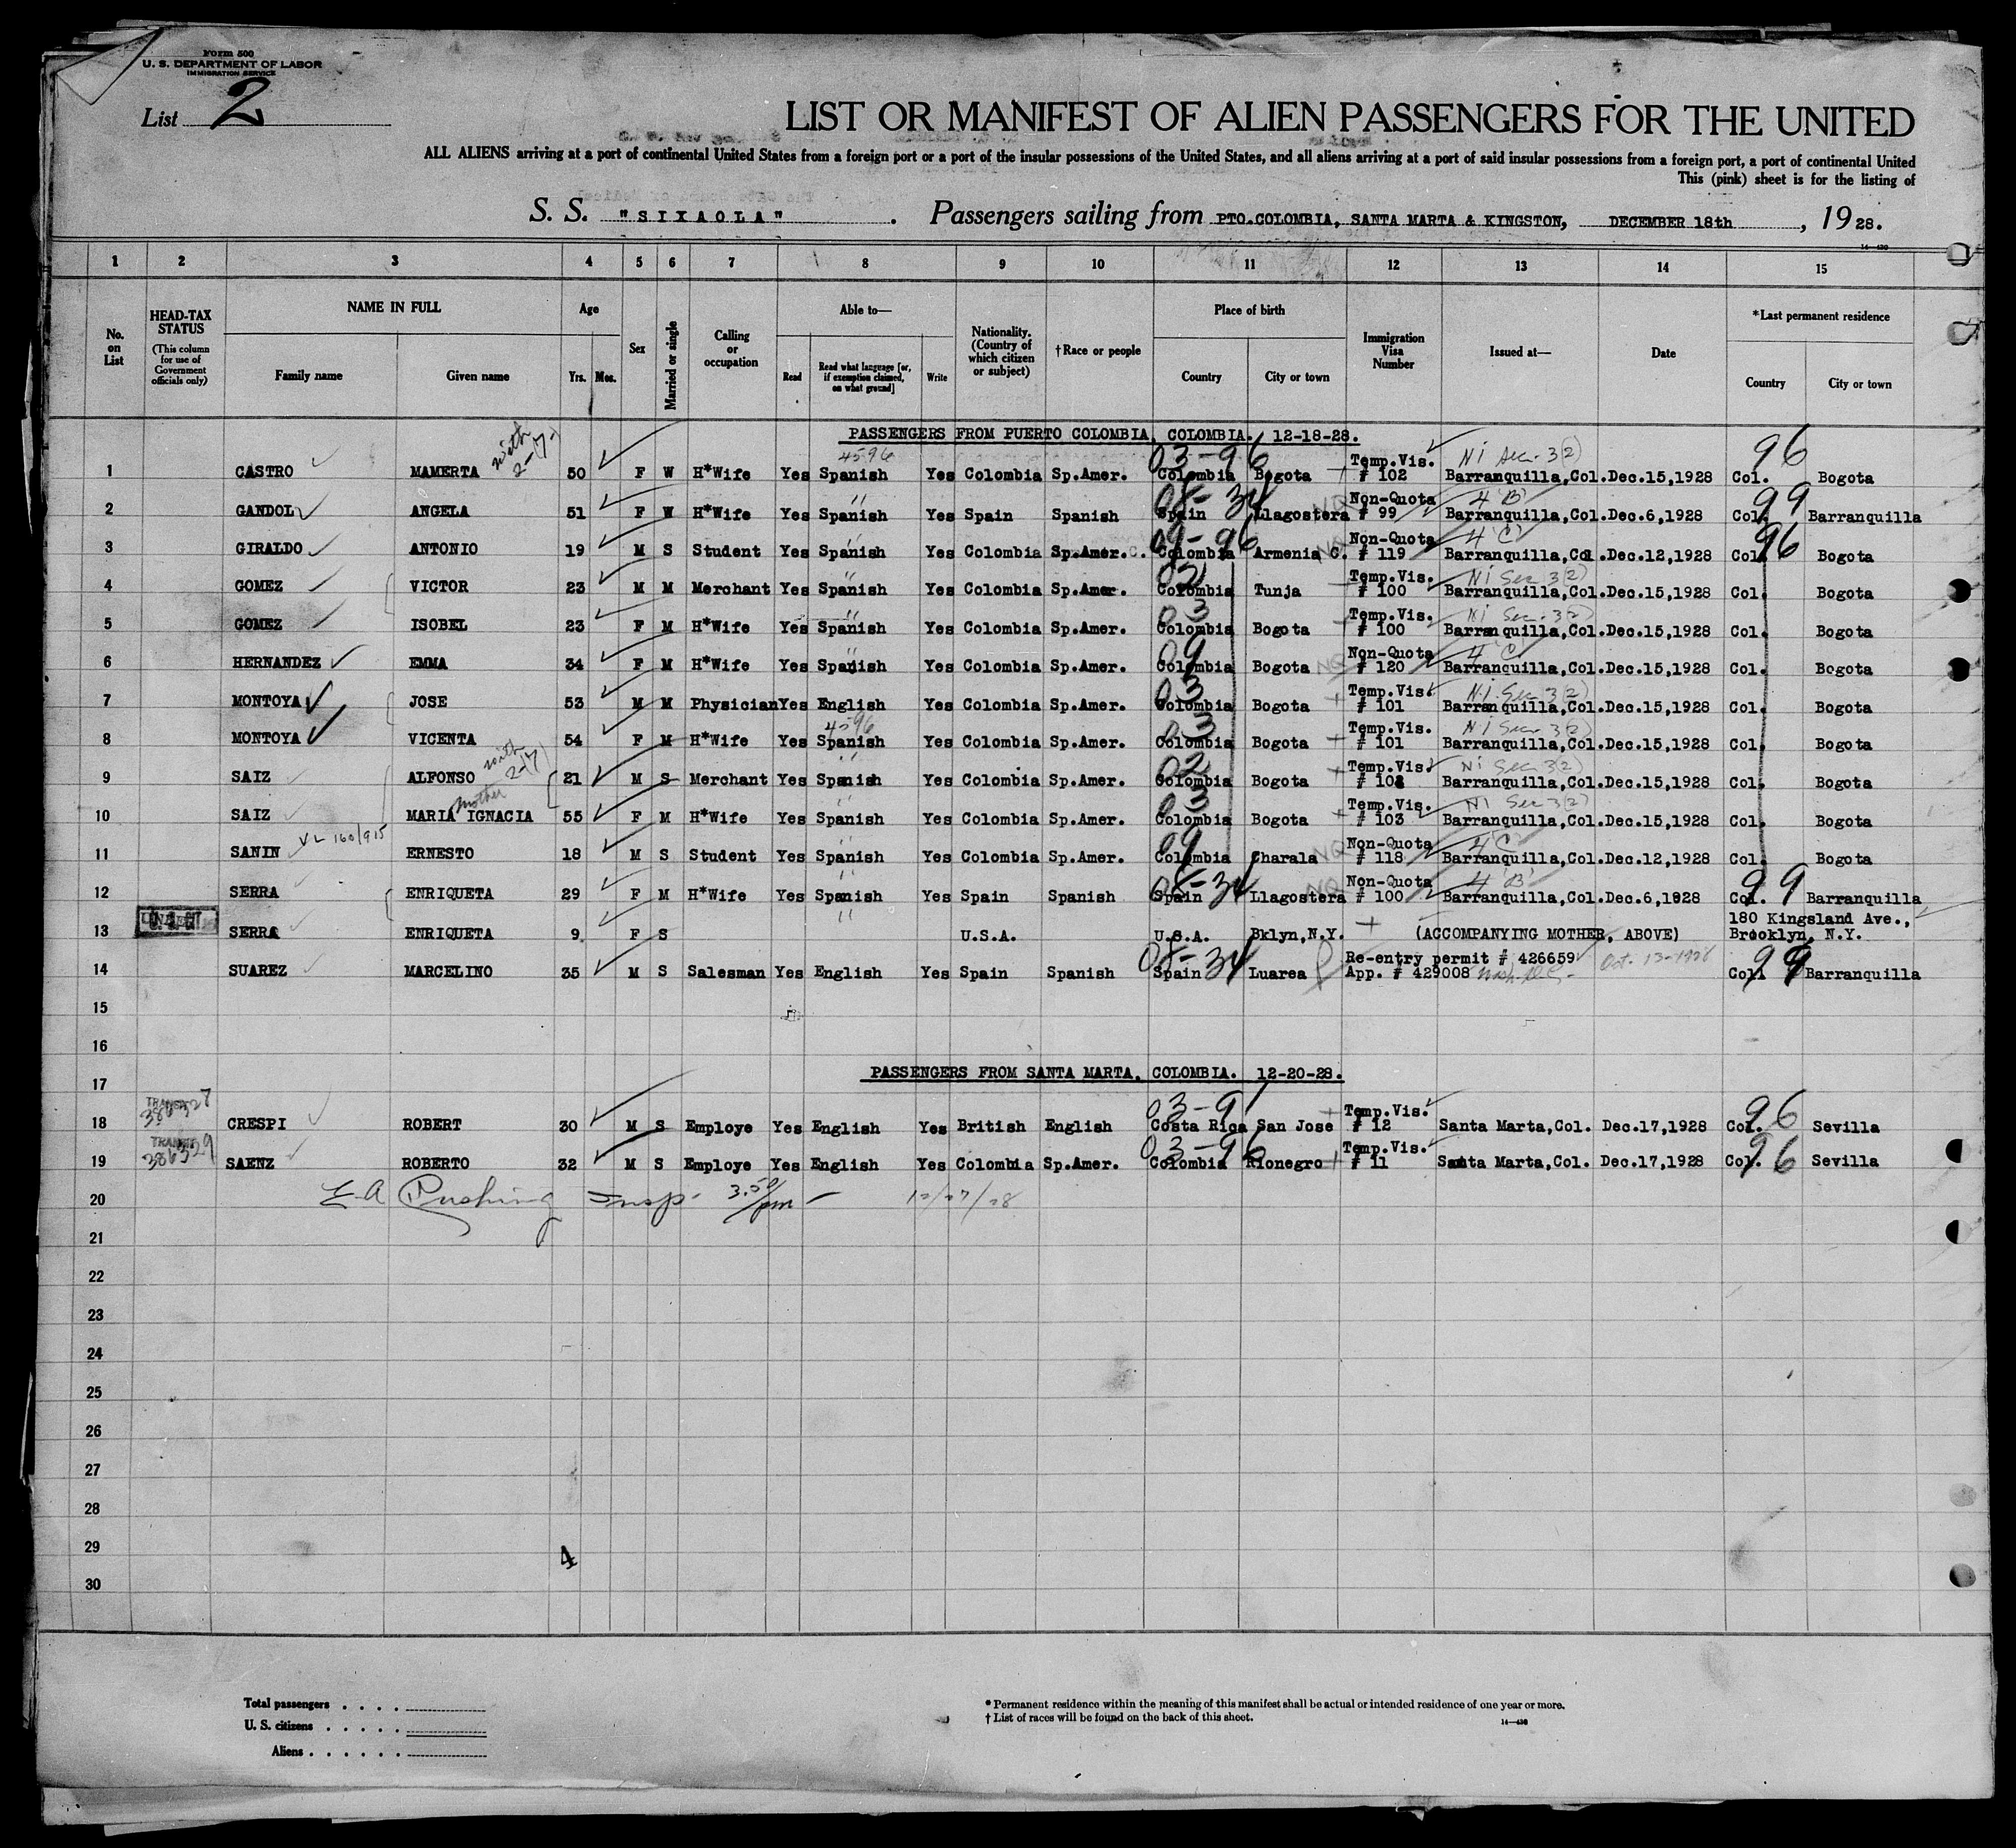 Form 500
U. S. DEPARTMENT OF LABOR
IMMIGRATION SERVICE
List 2
LIST OR MANIFEST OF ALIEN PASSENGERS FOR THE UNITED
ALL ALIENS arriving at a port of continental United States from a foreign port or a port of the insular possessions of the United States, and all aliens arriving at a port of said insular possessions from a foreign port, a port of continental United
This (pink) sheet is for the listing of
S. S. "SIXAOLA". Passengers sailing from PTO.COLOMBIA, SANTA MARTA & KINGSTON, DECEMBER 18th, 1928.
1 2 3 4 5 6 7 8 9 10 11 12 13 14 15
No. on List
HEAD-TAX STATUS (This column for use of Government officials only)
NAME IN FULL Family name Given name
Age Yrs. Mos.
Sex
Married or single
Calling or occupation
Able to— Read Read what language [or, if exemption claimed, on what ground] Write
Nationality. (Country of which citizen or subject)
†Race or people
Place of birth Country City or town
Immigration Visa Number
Issued at—
Date
*Last permanent residence Country City or town
PASSENGERS FROM PUERTO COLOMBIA, COLOMBIA. 12-18-28.
1 CASTRO MAMERTA with 2-(7-) 50 F W H*Wife Yes Spanish 4596 Yes Colombia Sp.Amer. 03-96 Colombia Bogota Temp.Vis. # 102 Ni Sec. 3(2) Barranquilla,Col. Dec.15,1928 96 Col. Bogota
2 GANDOL ANGELA 51 F W H*Wife Yes Spanish " Yes Spain Spanish 08-34 Spain Llagostera NQ Non-Quota # 99 4 B Barranquilla,Col. Dec.6,1928 99 Col. Barranquilla
3 GIRALDO ANTONIO 19 M S Student Yes Spanish " Yes Colombia Sp.Amer. 09-96 Colombia Armenia C. NQ Non-Quota # 119 4 C Barranquilla,Col. Dec.12,1928 96 Col. Bogota
4 GOMEZ VICTOR 23 M M Merchant Yes Spanish " Yes Colombia Sp.Amer. 02 Colombia Tunja Temp.Vis. # 100 Ni Sec 3(2) Barranquilla,Col. Dec.15,1928 Col. Bogota
5 GOMEZ ISOBEL 23 F M H*Wife Yes Spanish " Yes Colombia Sp.Amer. 03 Colombia Bogota Temp.Vis. # 100 Ni Sec. 3(2) Barranquilla,Col. Dec.15,1928 Col. Bogota
6 HERNANDEZ EMMA 34 F M H*Wife Yes Spanish " Yes Colombia Sp.Amer. 09 Colombia Bogota NQ Non-Quota # 120 4 C Barranquilla,Col. Dec.15,1928 Col. Bogota
7 MONTOYA JOSE 53 M M Physician Yes English Yes Colombia Sp.Amer. 03 Colombia Bogota Temp.Vis. # 101 Ni Sec 3(2) Barranquilla,Col. Dec.15,1928 Col. Bogota
8 MONTOYA VICENTA 54 F M H*Wife Yes Spanish 4596 Yes Colombia Sp.Amer. 03 Colombia Bogota Temp.Vis. # 101 Ni Sec. 3(2) Barranquilla,Col. Dec.15,1928 Col. Bogota
9 SAIZ ALFONSO with 2-(7) 21 M S Merchant Yes Spanish " Yes Colombia Sp.Amer. 02 Colombia Bogota Temp.Vis. Ni Sec 3(2) Barranquilla,Col. Dec.15,1928 Col. Bogota
10 SAIZ MARIA IGNACIA mother 55 F M H*Wife Yes Spanish " Yes Colombia Sp.Amer. 03 Colombia Bogota Temp.Vis. # 103 Ni Sec 3(2) Barranquilla,Col. Dec.15,1928 Col. Bogota
11 SANIN VL 160/915 ERNESTO 18 M S Student Yes Spanish " Yes Colombia Sp.Amer. 09 Colombia Charala NQ Non-Quota # 118 4 C Barranquilla,Col. Dec.12,1928 Col. Bogota
12 SERRA ENRIQUETA 29 F M H*Wife Yes Spanish " Yes Spain Spanish 08-34 Spain Llagostera NQ Non-Quota # 100 4 B Barranquilla,Col. Dec.6,1928 99 Col. Barranquilla
13 SERRA ENRIQUETA 9 F S " U.S.A. U.S.A. Bklyn,N.Y. (ACCOMPANYING MOTHER, ABOVE) 180 Kingsland Ave., Brooklyn, N.Y.
14 SUAREZ MARCELINO 35 M S Salesman Yes English Yes Spain Spanish 08-34 Spain Luarea Re-entry permit # 426659 App. # 429008 Wash. D.C. Oct. 13-1928 99 Col. Barranquilla
15
16
PASSENGERS FROM SANTA MARTA, COLOMBIA. 12-20-28.
17
18 TRANSIT 386327 CRESPI ROBERT 30 M S Employe Yes English Yes British English 03-91 Costa Rica San Jose Temp.Vis. # 12 Santa Marta,Col. Dec.17,1928 96 Col. Sevilla
19 TRANSIT 386329 SAENZ ROBERTO 32 M S Employe Yes English Yes Colombia Sp.Amer. 03-96 Colombia Rionegro Temp.Vis. # 11 Santa Marta,Col. Dec.17,1928 96 Col. Sevilla
20 E A Pushing Insp. 3.50/pm - 12/27/28
21
22
23
24
25
26
27
28
29 4
30
Total passengers
U. S. citizens
Aliens
* Permanent residence within the meaning of this manifest shall be actual or intended residence of one year or more.
† List of races will be found on the back of this sheet.
14—430